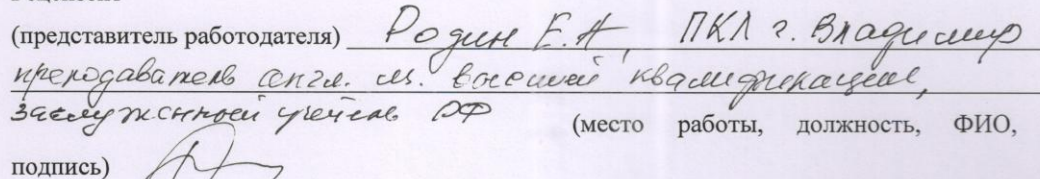 (представитель работодателя) Родин Е.А, ПКЛ г. Владимир
преподаватель англ. яз. высшей квалификации,
заслуженный учитель РФ (место работы, должность, ФИО,
подпись)